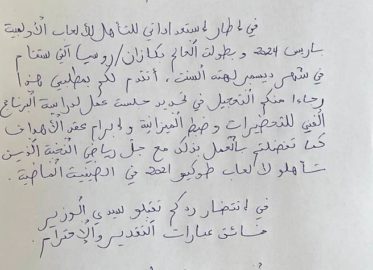 في إطار استعداداتي للتأهل للألعاب الأولمبية
باريس 2024 و بطولة العالم بكازان/روسيا التي ستقام
في شهر ديسمبر لهته السنة، أتقدم لكم بمطلبي هذا
رجاءا منكم التعجيل في تحديد جلسة عمل لدراسة البرنامج
الفني للتحضيرات و ضبط الميزانية و إبرام عقد الأهداف
كما تفضلتم بالعمل بذلك مع جل رياضي النخبة الذين
تأهلو لألعاب طوكيو 2021 في الصيفية الماضية.
في إنتضار ردكم تقبلو سيدي الوزير
فائق عبارات التقدير والإحترام.